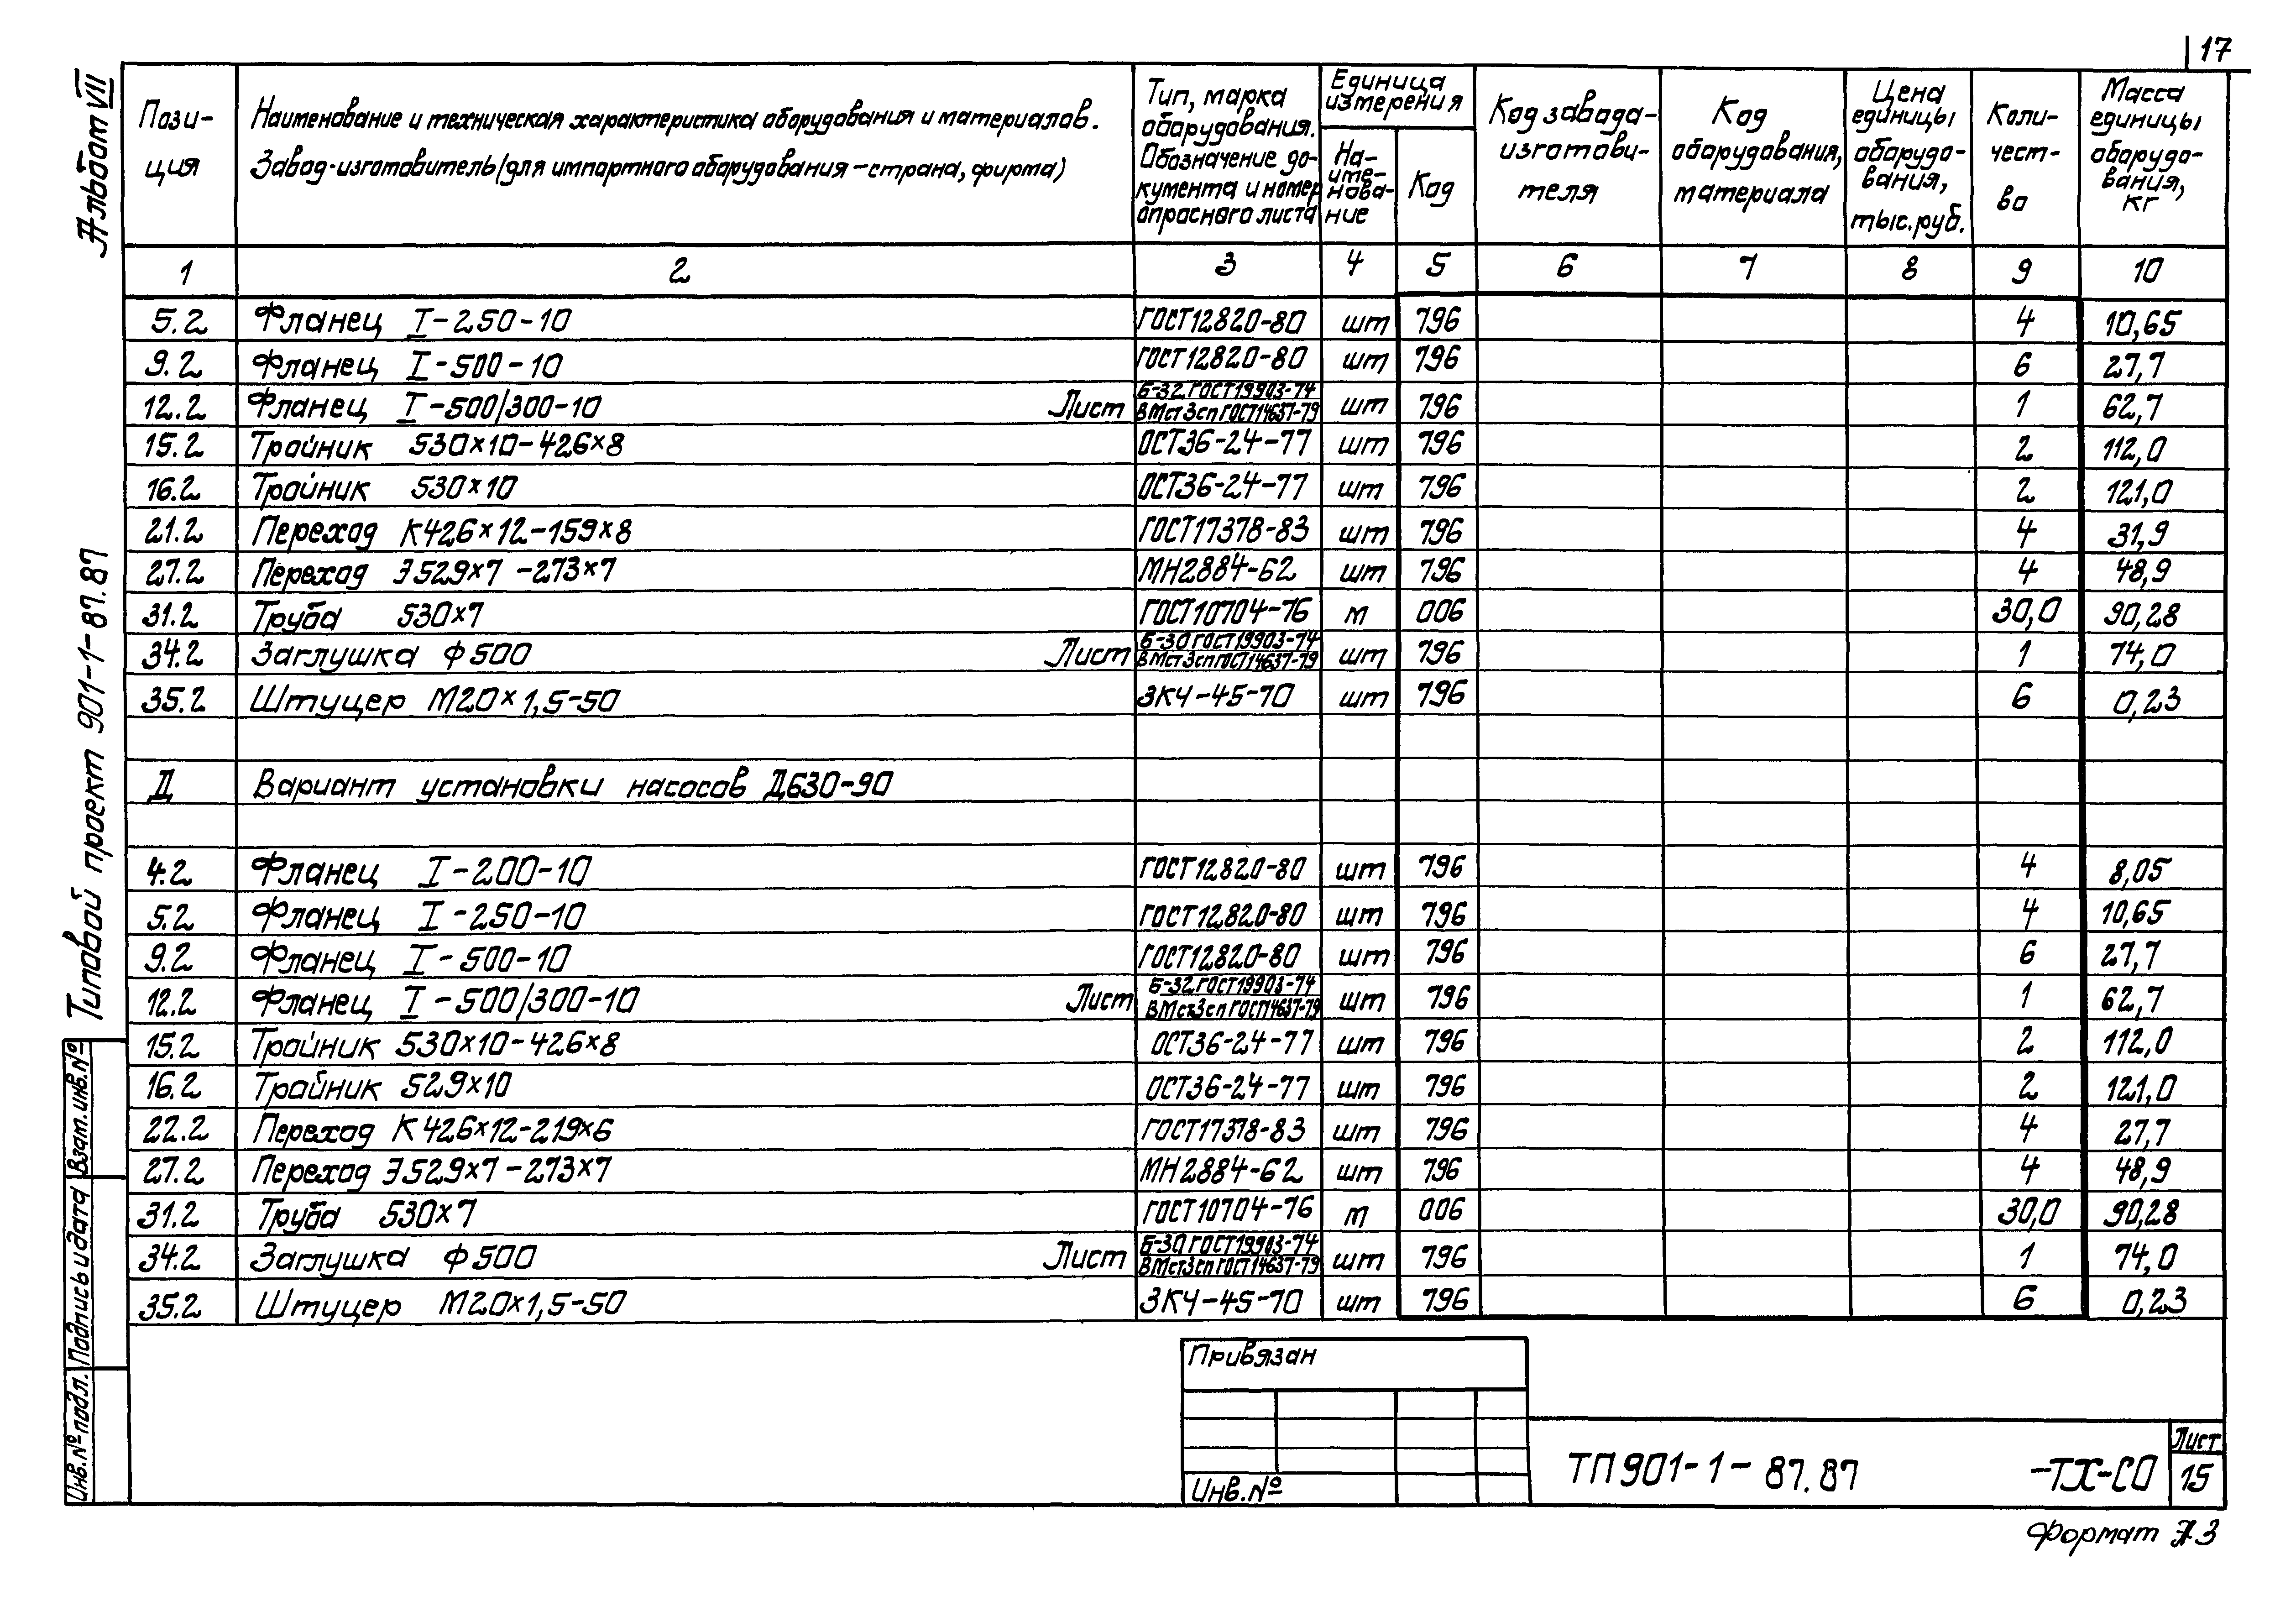 17
Альбом VII
Типовой проект 901-1-87.87
Взам. инв. №
Подпись и дата
Инв. № подл.
Пози-
ция
Наименование и техническая характеристика оборудования и материалов.
Завод-изготовитель (для импортного оборудования – страна, фирма)
Тип, марка
оборудования.
Обозначение до-
кумента и номер
опросного листа
Единица
измерения
На-
име-
нова-
ние
Код
Код завода-
изготови-
теля
Код
оборудования,
материала
Цена
единицы
оборудо-
вания,
тыс. руб.
Коли-
чест-
во
Масса
единицы
оборудо-
вания,
кг
1 2 3 4 5 6 7 8 9 10
5.2 Фланец I-250-10 ГОСТ12820-80 шт 796 4 10,65
9.2 Фланец I-500-10 ГОСТ12820-80 шт 796 6 27,7
12.2 Фланец I-500/300-10 Лист Б-32 ГОСТ19903-74 / ВМст3сп ГОСТ14637-79 шт 796 1 62,7
15.2 Тройник 530×10-426×8 ОСТ36-24-77 шт 796 2 112,0
16.2 Тройник 530×10 ОСТ36-24-77 шт 796 2 121,0
21.2 Переход К426×12-159×8 ГОСТ17378-83 шт 796 4 31,9
27.2 Переход Э529×7-273×7 МН2884-62 шт 796 4 48,9
31.2 Труба 530×7 ГОСТ10704-76 м 006 30,0 90,28
34.2 Заглушка ф500 Лист Б-30 ГОСТ19903-74 / ВМст3сп ГОСТ14637-79 шт 796 1 74,0
35.2 Штуцер М20×1,5-50 ЗКЧ-45-70 шт 796 6 0,23
Д Вариант установки насосов Д630-90
4.2 Фланец I-200-10 ГОСТ12820-80 шт 796 4 8,05
5.2 Фланец I-250-10 ГОСТ12820-80 шт 796 4 10,65
9.2 Фланец I-500-10 ГОСТ12820-80 шт 796 6 27,7
12.2 Фланец I-500/300-10 Лист Б-32 ГОСТ19903-74 / ВМст3сп ГОСТ14637-79 шт 796 1 62,7
15.2 Тройник 530×10-426×8 ОСТ36-24-77 шт 796 2 112,0
16.2 Тройник 529×10 ОСТ36-24-77 шт 796 2 121,0
22.2 Переход К426×12-219×6 ГОСТ17378-83 шт 796 4 27,7
27.2 Переход Э529×7-273×7 МН2884-62 шт 796 4 48,9
31.2 Труба 530×7 ГОСТ10704-76 м 006 30,0 90,28
34.2 Заглушка ф500 Лист Б-30 ГОСТ19903-74 / ВМст3сп ГОСТ14637-79 шт 796 1 74,0
35.2 Штуцер М20×1,5-50 ЗКЧ-45-70 шт 796 6 0,23
Привязан
Инв. №
ТП 901-1-87.87 -ТХ-СО
Лист
15
Формат А3